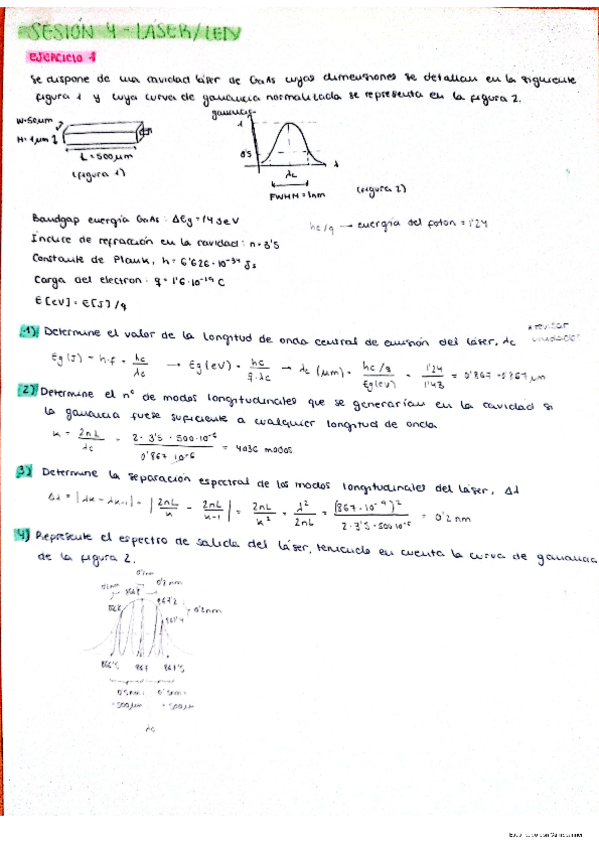 SESIÓN 4 - LÁSER/LED
EJERCICIO 1
Se dispone de una cavidad láser de GaAs cuyas dimensiones se detallan en la siguiente
figura 1 y cuya curva de ganancia normalizada se representa en la figura 2.
W=50μm
H=1μm
L=500μm
(figura 1)
ganancia
1
0'5
λ
λc
FWHM=1nm
(figura 2)
Bandgap energía GaAs: ΔEg=1'43eV
hc/q → energía del foton = 1'24
Índice de refracción en la cavidad: n=3'5
Constante de Plank, h=6'626·10⁻³⁴ Js
Carga del electron: q=1'6·10⁻¹⁹ C
E[eV]=E[J]/q
1) Determine el valor de la longitud de onda central de emisión del láser, λc
a revisar
Eg(J) = h·f = hc/λc → Eg(eV) = hc/q·λc → λc(μm) = hc/q / Eg(eV) = 1'24/1'43 = 0'867 μm
2) Determine el nº de modos longitudinales que se generarían en la cavidad si
la ganancia fuese suficiente a cualquier longitud de onda
k = 2nL/λc = 2·3'5·500·10⁻⁶/0'867·10⁻⁶ = 4036 modos
3) Determine la separación espectral de los modos longitudinales del láser, Δλ
Δλ = |λk - λk-1| = |2nL/k - 2nL/k-1| = 2nL/k² = λ²/2nL = (867·10⁻⁹)²/2·3'5·500·10⁻⁶ = 0'2nm
4) Represente el espectro de salida del láser, teniendo en cuenta la curva de ganancia
de la figura 2.
0'2nm
0'2nm
0'2nm
867'2
866'5 867 867'5
0'5nm 0'5nm
λc